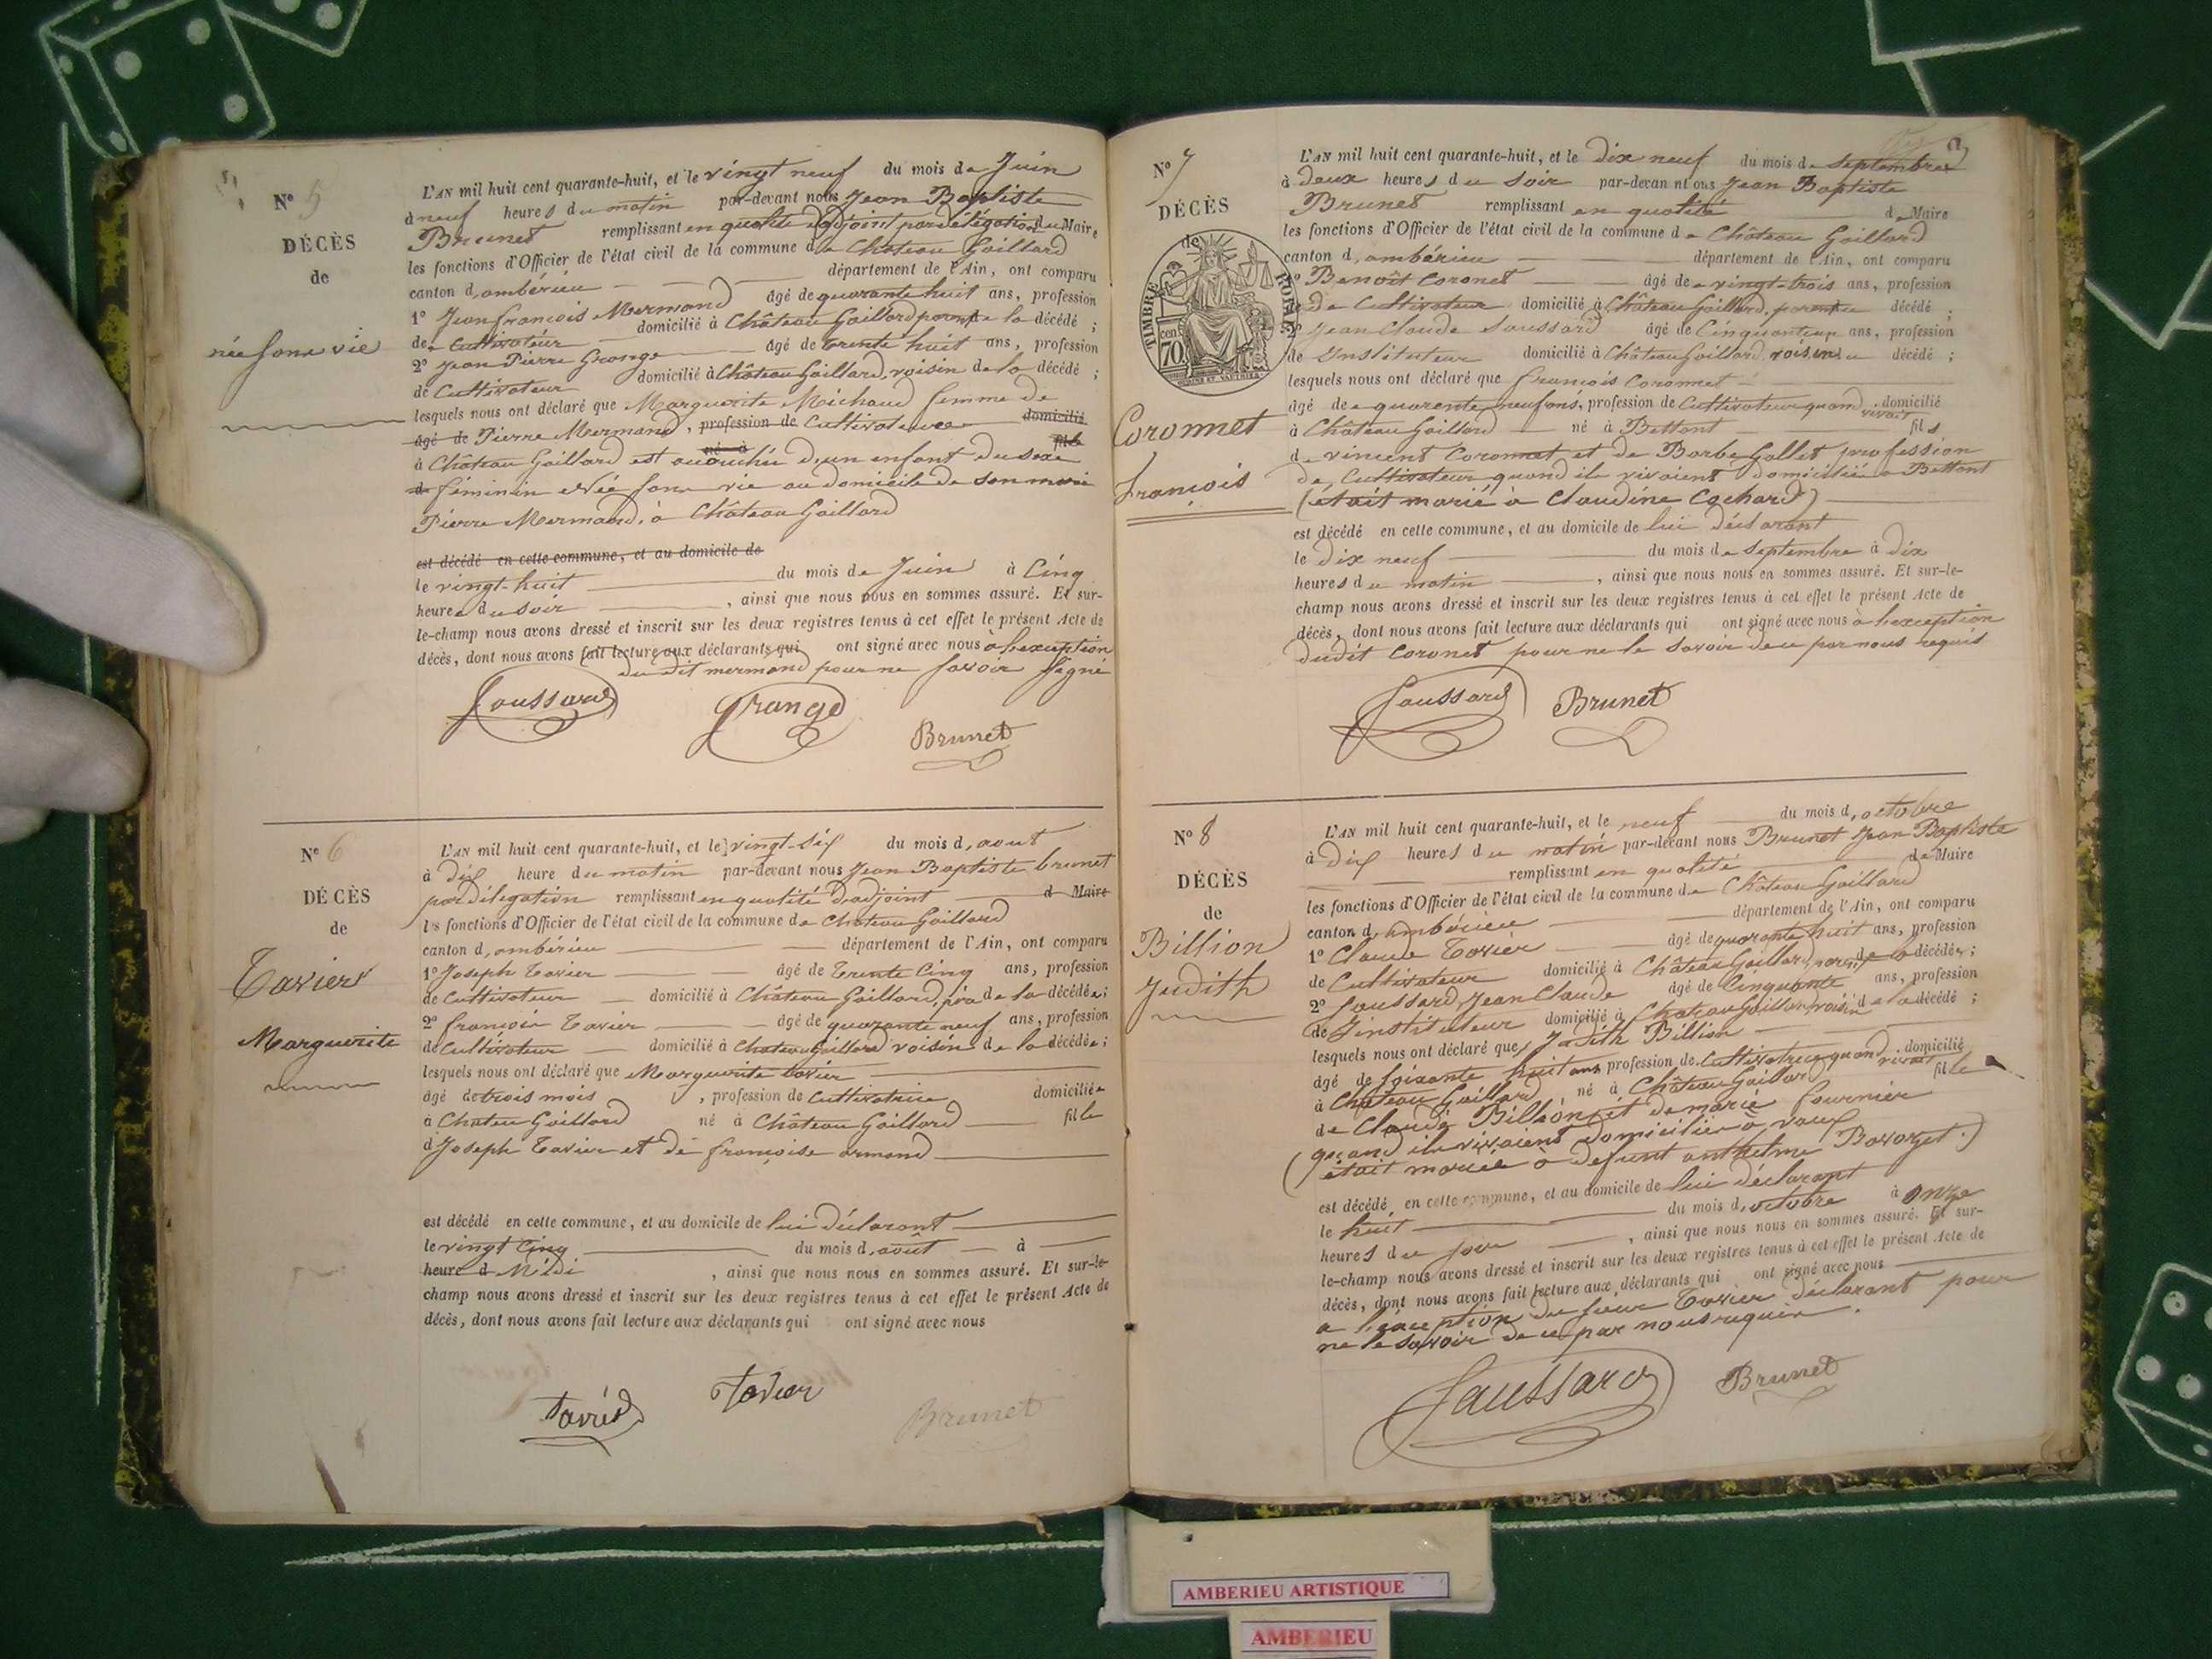 Nº 5
DÉCÈS
de
née sans vie
L'AN mil huit cent quarante-huit, et le vingt neuf du mois de Juin
à neuf heures du matin par-devant nous Jean Baptiste
Brunet remplissant en qualité d'adjoint par délégation du Maire
les fonctions d'Officier de l'état civil de la commune de Château Gaillard
canton d'ambérieu département de l'Ain, ont comparu
1º Jean françois Mermand âgé de quarante huit ans, profession
de Cultivateur domicilié à Château Gaillard parent de la décédé ;
2º Jean Pierre Grange âgé de trente huit ans, profession
de Cultivateur domicilié à Château Gaillard, voisin de la décédé ;
lesquels nous ont déclaré que Marguerite Michaud femme de
âgé de Pierre Mermand, profession de Cultivateurs domicilié
né à fils
à Château Gaillard est accouchée d'un enfant du sexe
d féminin et Née sans vie au domicile de son mari
Pierre Mermand, à Château Gaillard
est décédé en cette commune, et au domicile de
le vingt-huit du mois de Juin à Cinq
heures du soir , ainsi que nous nous en sommes assuré. Et sur-
le-champ nous avons dressé et inscrit sur les deux registres tenus à cet effet le présent Acte de
décès, dont nous avons fait lecture aux déclarants qui ont signé avec nous à l'exception
du dit mermand pour ne savoir signé
Saussard Grange
Brunet
Nº 6
DÉCÈS
de
Tavier
Marguerite
L'AN mil huit cent quarante-huit, et le vingt-six du mois d'aout
à dix heure du matin par-devant nous Jean Baptiste brunet
par délégation remplissant en qualité d'adjoint d Maire
les fonctions d'Officier de l'état civil de la commune de Château Gaillard
canton d'ambérieu département de l'Ain, ont comparu
1º Joseph Tavier âgé de Trente Cinq ans, profession
de Cultivateur domicilié à Château Gaillard, père de la décédée ;
2º françois Tavier âgé de quarante neuf ans, profession
de Cultivateur domicilié à Château Gaillard voisin de la décédée ;
lesquels nous ont déclaré que Marguerite tavier
âgé de trois mois , profession de Cultivatrice domiciliée
à Château Gaillard né à Château Gaillard fille
d Joseph Tavier et de françoise armand
est décédé en cette commune, et au domicile de lui déclarant
le vingt Cinq du mois d'août à
heure d Midi , ainsi que nous nous en sommes assuré. Et sur-le-
champ nous avons dressé et inscrit sur les deux registres tenus à cet effet le présent Acte de
décès, dont nous avons fait lecture aux déclarants qui ont signé avec nous
Tavier Tavier
Brunet
Nº 7
DÉCÈS
de
TIMBRE ROYAL
70 cen
Coronnet
françois
L'AN mil huit cent quarante-huit, et le Dix neuf du mois de septembre
à deux heures du soir par-devan nt ous Jean Baptiste
Brunet remplissant en qualité de Maire
les fonctions d'Officier de l'état civil de la commune de Château Gaillard
canton d'ambérieu département de l'Ain, ont comparu
1º Benoît Coronet âgé de vingt-trois ans, profession
de Cultivateur domicilié à Château Gaillard, parent du décédé ;
2º Jean Claude Saussard âgé de Cinquante un ans, profession
de Instituteur domicilié à Château Gaillard, voisin du décédé ;
lesquels nous ont déclaré que françois Coronnet
âgé de quarante neuf ans, profession de Cultivateur quand vivait domicilié
à Château Gaillard né à Bettant fils
de vincent Coronnet et de Barbe Gallet profession
de Cultivateur quand ils vivaient domiciliés à Bettant
(était marié à Claudine Cochard)
est décédé en cette commune, et au domicile de lui déclarant
le dix neuf du mois de septembre à dix
heures du matin , ainsi que nous nous en sommes assuré. Et sur-le-
champ nous avons dressé et inscrit sur les deux registres tenus à cet effet le présent Acte de
décès, dont nous avons fait lecture aux déclarants qui ont signé avec nous à l'exception
dudit Coronet pour ne le savoir de ce par nous requis
Saussard Brunet
Nº 8
DÉCÈS
de
Billion
Judith
L'AN mil huit cent quarante-huit, et le neuf du mois d'octobre
à dix heures du matin par-devant nous Brunet Jean Baptiste
remplissant en qualité de Maire
les fonctions d'Officier de l'état civil de la commune de Château Gaillard
canton d'ambérieu département de l'Ain, ont comparu
1º Claude Tavier âgé de quarante huit ans, profession
de Cultivateur domicilié à Château Gaillard, parent de la décédée ;
2º Saussard Jean Claude âgé de Cinquante ans, profession
de Instituteur domicilié à Château Gaillard voisin de la décédé ;
lesquels nous ont déclaré que Judith Billion
âgé de soixante huit ans profession de Cultivatrice quand vivait domicilié
à Château Gaillard né à Château Gaillard fille
de Claude Billion et de marie fournier
quand ils vivaient domiciliés à vaux
(était mariée à defunt anthelme Bavozet.)
est décédé en cette commune, et au domicile de lui déclarant
le huit du mois d'octobre à onze
heures du soir , ainsi que nous nous en sommes assuré. Et sur-
le-champ nous avons dressé et inscrit sur les deux registres tenus à cet effet le présent Acte de
décès, dont nous avons fait lecture aux déclarants qui ont signé avec nous
à l'exception du sieur Tavier déclarant pour
ne le savoir de ce par nous requis.
Saussard Brunet
AMBERIEU ARTISTIQUE
AMBERIEU